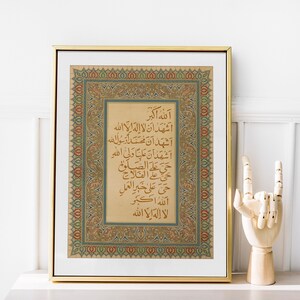 الله اكبر
اشهد ان لا اله الا الله
اشهد ان محمدا رسول الله
اشهد ان عليا ولي الله
حي على الصلوة
حي على الفلاح
حي على خير العمل
الله اكبر
لا اله الا الله